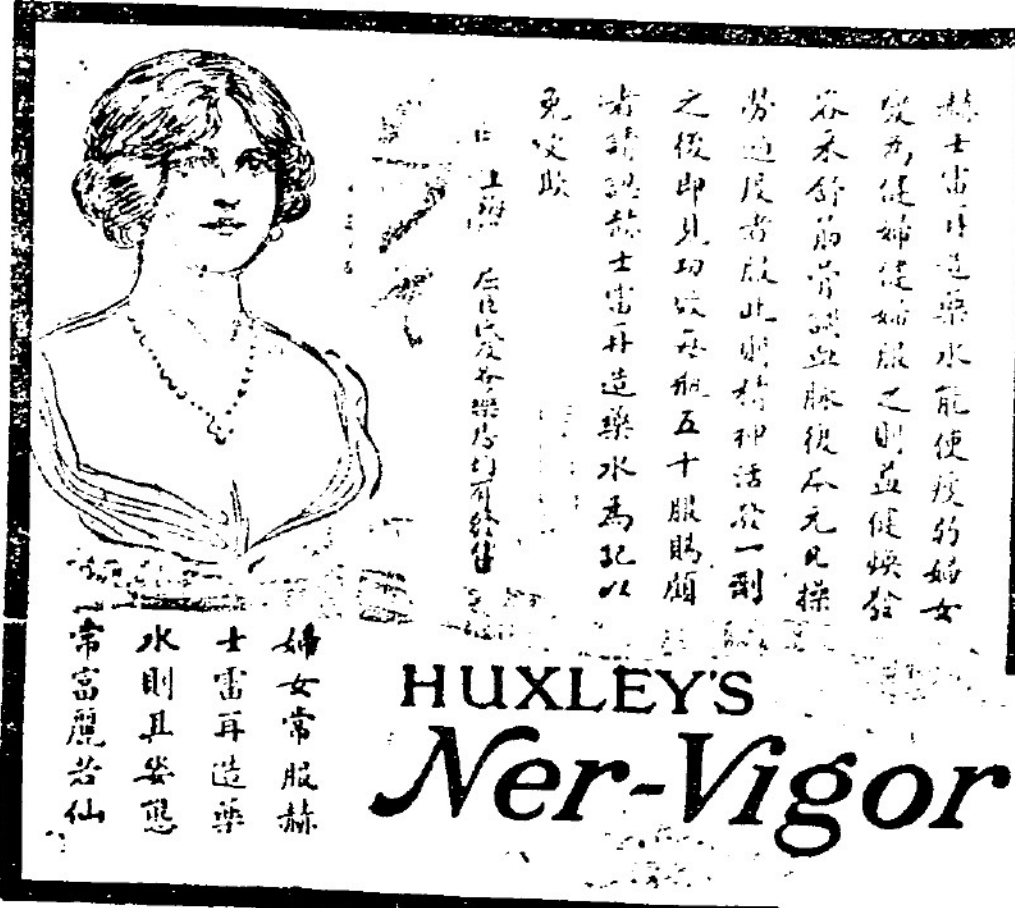 赫士雷再造藥水能使瘦弱婦女
變為健婦健婦服之則益健煥發
容禾舒筋骨調血脉復本元凡操
勞過度者服此則精神活發一劑
之後即見功效每瓶五十服賜顧
者請認赫士雷再造藥水為記以
免受欺
上海 藥房均有經售
婦女常服赫
士雷再造藥
水則其姿態
常富麗若仙
HUXLEY'S
Ner-Vigor